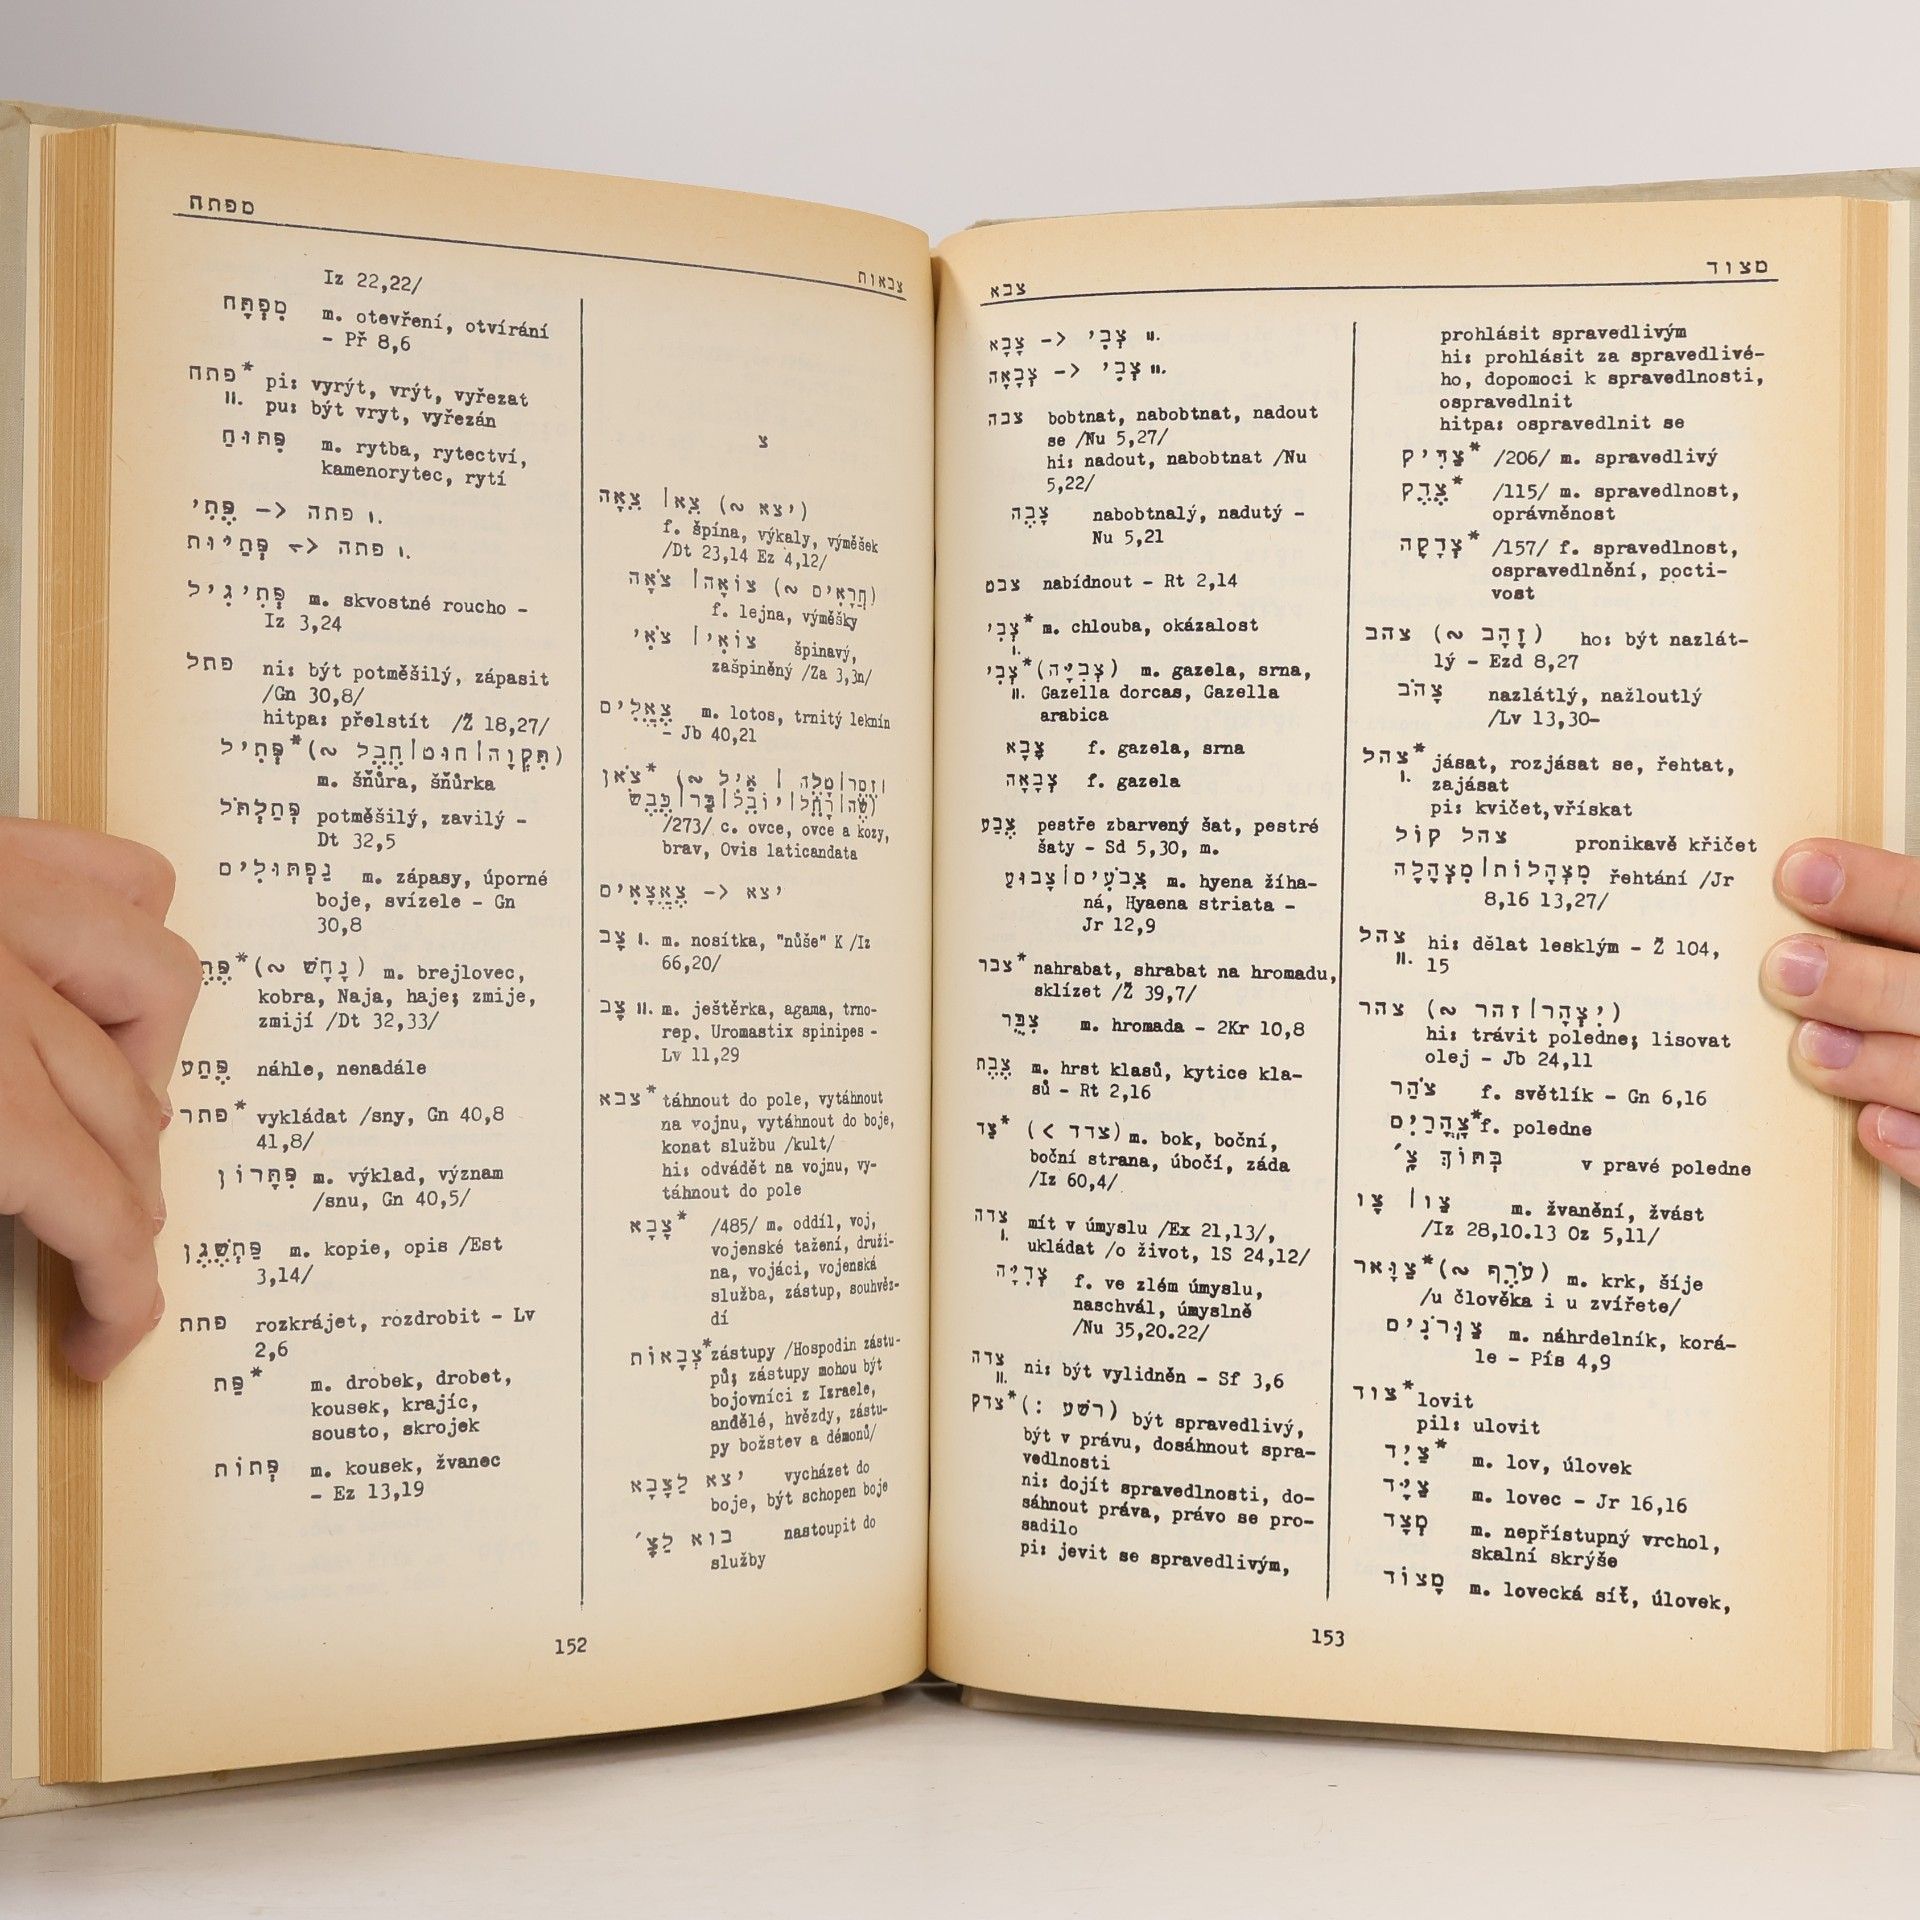 מפתח
צבאות
Iz 22,22/
מִפְתָּח m. otevření, otvírání
- Př 8,6
פתח* pi: vyrýt, vrýt, vyřezat
II. pu: být vryt, vyřezán
פִּתּוּחַ m. rytba, rytectví,
kamenorytec, rytí
פֶּתִי -> פתה I.
פְּתַיּוּת -> פתה I.
פְּתִיגִיל m. skvostné roucho -
Iz 3,24
פתל ni: být potměšilý, zápasit
/Gn 30,8/
hitpa: přelstít /Ž 18,27/
פְּתִיל* (~ חֶבֶל|חוּט|תִּקְוָה)
m. šňůra, šňůrka
פְּתַלְתֹּל potměšilý, zavilý -
Dt 32,5
נַפְתּוּלִים m. zápasy, úporné
boje, svízele - Gn
30,8
* (~ נָחָשׁ) m. brejlovec,
kobra, Naja, haje; zmije,
zmijí /Dt 32,33/
פֶּתַע náhle, nenadále
פתר* vykládat /sny, Gn 40,8
41,8/
פִּתָּרוֹן m. výklad, význam
/snu, Gn 40,5/
פַּתְשֶׁגֶן m. kopie, opis /Est
3,14/
פתת rozkrájet, rozdrobit - Lv
2,6
פַּת* m. drobek, drobet,
kousek, krajíc,
sousto, skrojek
פְּתוֹת m. kousek, žvanec
- Ez 13,19
צ
צֵאָה |צֵא (~ יצא)
f. špína, výkaly, výměšek
/Dt 23,14 Ez 4,12/
צֹאָה |צוֹאָה (~ חֲרָאִים)
f. lejna, výměšky
צֹאִי |צוֹאִי špinavý,
zašpiněný /Za 3,3n/
צֶאֱלִים m. lotos, trnitý leknín
- Jb 40,21
צֹאן* (~ אַיִל | טָלֶה|
כֶּבֶשׂ|כַּר|יוֹבֵל|רָחֵל|שֶׂה)
/273/ c. ovce, ovce a kozy,
brav, Ovis laticandata
צֶאֱצָאִים -> יצא
צָב I. m. nosítka, "nůše" K /Iz
66,20/
צָב II. m. ještěrka, agama, trno-
rep, Uromastix spinipes -
Lv 11,29
צבא* táhnout do pole, vytáhnout
na vojnu, vytáhnout do boje,
konat službu /kult/
hi: odvádět na vojnu, vy-
táhnout do pole
צָבָא* /485/ m. oddíl, voj,
vojenské tažení, druži-
na, vojáci, vojenská
služba, zástup, souhvěz-
dí
צְבָאוֹת* zástupy /Hospodin zástu-
pů; zástupy mohou být
bojovníci z Izraele,
andělé, hvězdy, zástu-
py božstev a démonů/
יצא לַצָּבָא vycházet do
boje, být schopen boje
בוא לַצָּ׳ nastoupit do
služby
152
צבא
מצוד
צָבָא -> צְבִי II.
צְבָאָה -> צְבִי II.
צבה bobtnat, nabobtnat, nadout
se /Nu 5,27/
hi: nadout, nabobtnat /Nu
5,22/
צָבֶה nabobtnalý, nadutý -
Nu 5,21
צבט nabídnout - Rt 2,14
צְבִי* m. chlouba, okázalost
I.
צְבִי* (צְבִיָּה) m. gazela, srna,
II. Gazella dorcas, Gazella
arabica
צָבָא f. gazela, srna
צְבָאָה f. gazela
צֶבַע pestře zbarvený šat, pestré
šaty - Sd 5,30, m.
צָבוּעַ|צְבֹעִים m. hyena žíha-
ná, Hyaena striata -
Jr 12,9
צבר* nahrabat, shrabat na hromadu,
sklízet /Ž 39,7/
צִבֻּר m. hromada - 2Kr 10,8
צֶבֶת m. hrst klasů, kytice kla-
sů - Rt 2,16
צַד* (צדד >) m. bok, boční,
boční strana, úbočí, záda
/Iz 60,4/
צדה mít v úmyslu /Ex 21,13/,
I. ukládat /o život, 1S 24,12/
צְדִיָּה f. ve zlém úmyslu,
naschvál, úmyslně
/Nu 35,20.22/
צדה
II. ni: být vylidněn - Sf 3,6
צדק* (: רשע) být spravedlivý,
být v právu, dosáhnout spra-
vedlnosti
ni: dojít spravedlnosti, do-
sáhnout práva, právo se pro-
sadilo
pi: jevit se spravedlivým,
prohlásit spravedlivým
hi: prohlásit za spravedlivé-
ho, dopomoci k spravedlnosti,
ospravedlnit
hitpa: ospravedlnit se
צַדִּיק* /206/ m. spravedlivý
צֶדֶק* /115/ m. spravedlnost,
oprávněnost
צְדָקָה* /157/ f. spravedlnost,
ospravedlnění, pocti-
vost
צהב (~ זָהָב) ho: být nazlát-
lý - Ezd 8,27
צָהֹב nazlátlý, nažloutlý
/Lv 13,30-
צהל* jásat, rozjásat se, řehtat,
I. zajásat
pi: kvičet,vřískat
צהל קוֹל pronikavě křičet
מִצְהָלָה|מִצְהָלוֹת řehtání /Jr
8,16 13,27/
צהל hi: dělat lesklým - Ž 104,
II. 15
צהר (~ זהר|יִצְהָר)
hi: trávit poledne; lisovat
olej - Jb 24,11
צֹהַר f. světlík - Gn 6,16
צָהֳרַיִם* f. poledne
בְּתוֹךְ צָ׳ v pravé poledne
צָו |צַו m. žvanění, žvást
/Iz 28,10.13 Oz 5,11/
צַוָּאר* (~ עֹרֶף) m. krk, šíje
/u člověka i u zvířete/
צַוְּרֹנִים m. náhrdelník, korá-
le - Pís 4,9
צוד* lovit
pil: ulovit
צַיִד* m. lov, úlovek
צַיָּד m. lovec - Jr 16,16
מְצָד m. nepřístupný vrchol,
skalní skrýše
מָצוֹד m. lovecká síť, úlovek,
153